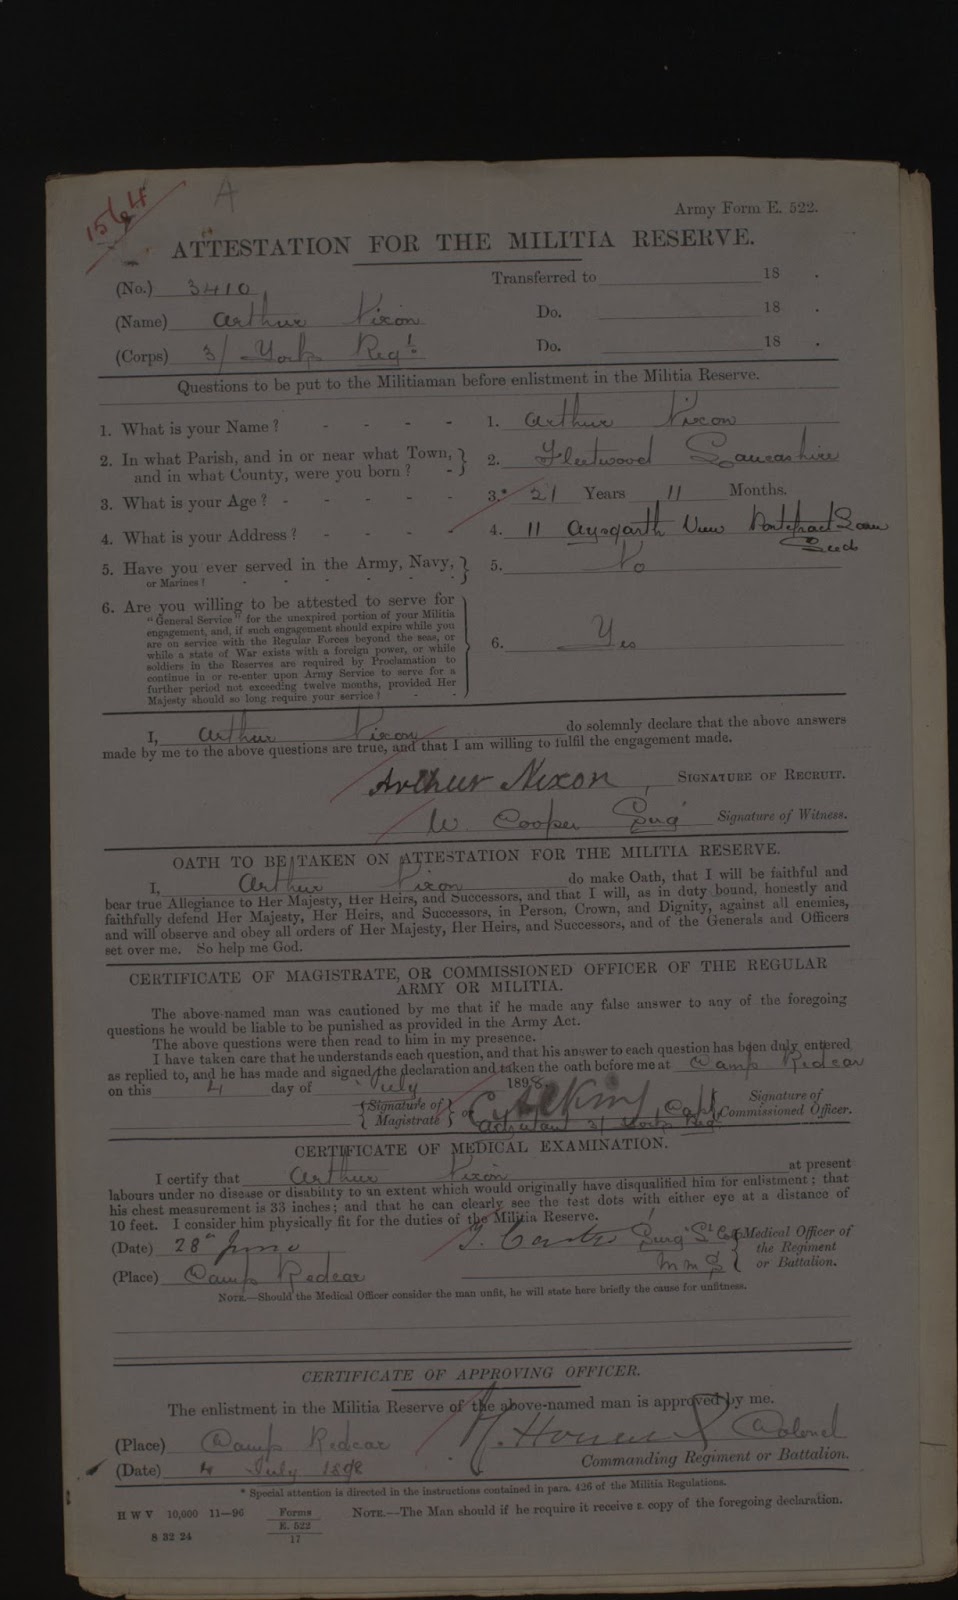 15/84
A
Army Form E. 522.
ATTESTATION FOR THE MILITIA RESERVE.
(No.) 3410
Transferred to 18 .
(Name) Arthur Nixon
Do. 18 .
(Corps) 3/ York Regt.
Do. 18 .
Questions to be put to the Militiaman before enlistment in the Militia Reserve.
1. What is your Name? - - - - 1. Arthur Nixon
2. In what Parish, and in or near what Town, and in what County, were you born? - 2. Fleetwood Lancashire
3. What is your Age? - - - - - 3.* 21 Years 11 Months.
4. What is your Address? - - - - 4. 11 Aysgarth View Pontefract Lane Leeds
5. Have you ever served in the Army, Navy, or Marines? - - - - - 5. No
6. Are you willing to be attested to serve for
"General Service" for the unexpired portion of your Militia
engagement, and, if such engagement should expire while you
are on service with the Regular Forces beyond the seas, or
while a state of War exists with a foreign power, or while
soldiers in the Reserves are required by Proclamation to
continue in or re-enter upon Army Service to serve for a
further period not exceeding twelve months, provided Her
Majesty should so long require your service? - -
6. Yes
I, Arthur Nixon do solemnly declare that the above answers
made by me to the above questions are true, and that I am willing to fulfil the engagement made.
Arthur Nixon, SIGNATURE OF RECRUIT.
W. Cooper Signature of Witness.
OATH TO BE TAKEN ON ATTESTATION FOR THE MILITIA RESERVE.
I, Arthur Nixon do make Oath, that I will be faithful and
bear true Allegiance to Her Majesty, Her Heirs, and Successors, and that I will, as in duty bound, honestly and
faithfully defend Her Majesty, Her Heirs, and Successors, in Person, Crown, and Dignity, against all enemies,
and will observe and obey all orders of Her Majesty, Her Heirs, and Successors, and of the Generals and Officers
set over me. So help me God.
CERTIFICATE OF MAGISTRATE, OR COMMISSIONED OFFICER OF THE REGULAR
ARMY OR MILITIA.
The above-named man was cautioned by me that if he made any false answer to any of the foregoing
questions he would be liable to be punished as provided in the Army Act.
The above questions were then read to him in my presence.
I have taken care that he understands each question, and that his answer to each question has been duly entered
as replied to, and he has made and signed the declaration and taken the oath before me at Camp Redcar
on this 4 day of July 1898
Signature of Magistrate or Capt Signature of Commissioned Officer.
Adjutant 3/ York Reg
CERTIFICATE OF MEDICAL EXAMINATION.
I certify that Arthur Nixon at present
labours under no disease or disability to an extent which would originally have disqualified him for enlistment; that
his chest measurement is 33 inches; and that he can clearly see the test dots with either eye at a distance of
10 feet. I consider him physically fit for the duties of the Militia Reserve.
(Date) 28th June
Surg Medical Officer of
the Regiment
or Battalion.
(Place) Camp Redcar
NOTE.—Should the Medical Officer consider the man unfit, he will state here briefly the cause for unfitness.
CERTIFICATE OF APPROVING OFFICER.
The enlistment in the Militia Reserve of the above-named man is approved by me.
(Place) Camp Redcar
Colonel
(Date) 4 July 1898
Commanding Regiment or Battalion.
* Special attention is directed in the instructions contained in para. 426 of the Militia Regulations.
H W V 10,000 11—96 Forms E. 522 17
NOTE.—The Man should if he require it receive a copy of the foregoing declaration.
8 32 24